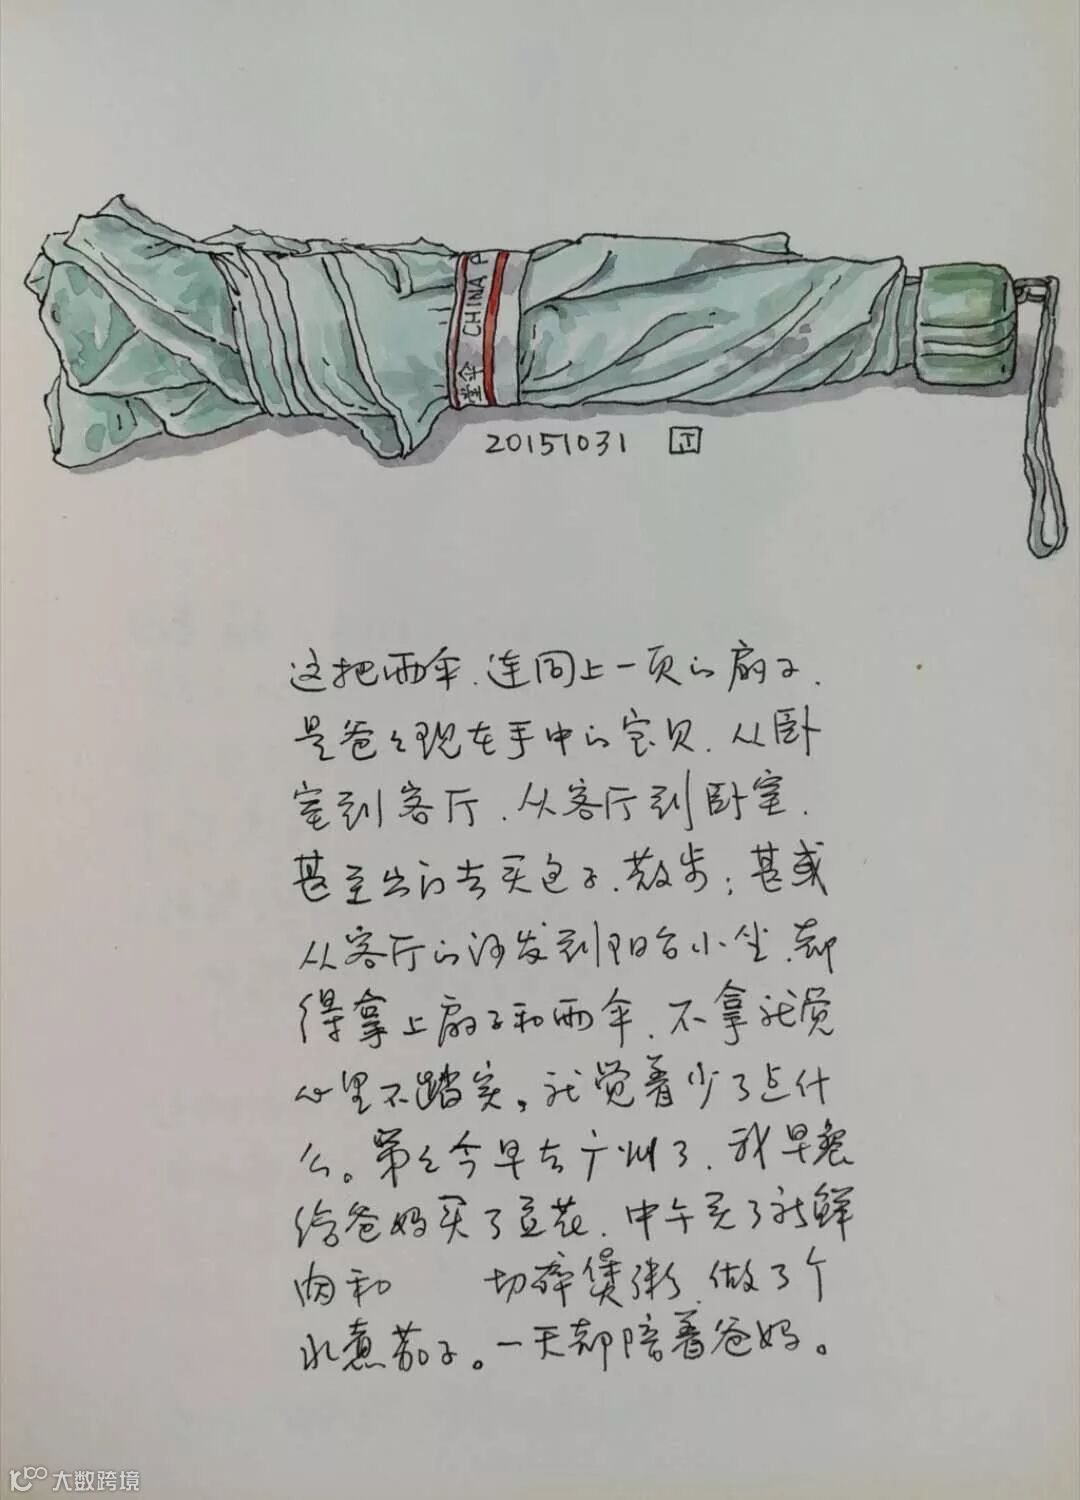 CHINA P
堂伞
20151031 正
这把雨伞、连同上一页的扇子、
是爸々现在手中的宝贝、从卧
室到客厅、从客厅到卧室、
甚至出门去买包子、散步；甚或
从客厅的沙发到阳台小坐、都
得拿上扇子和雨伞、不拿就觉
心里不踏实。就觉着少了点什
么。弟々今早去广州了、我早餐
给爸妈买了豆花、中午买了新鲜
肉和 切碎煲粥、做了个
水煮茄子。一天都陪着爸妈。
大数跨境